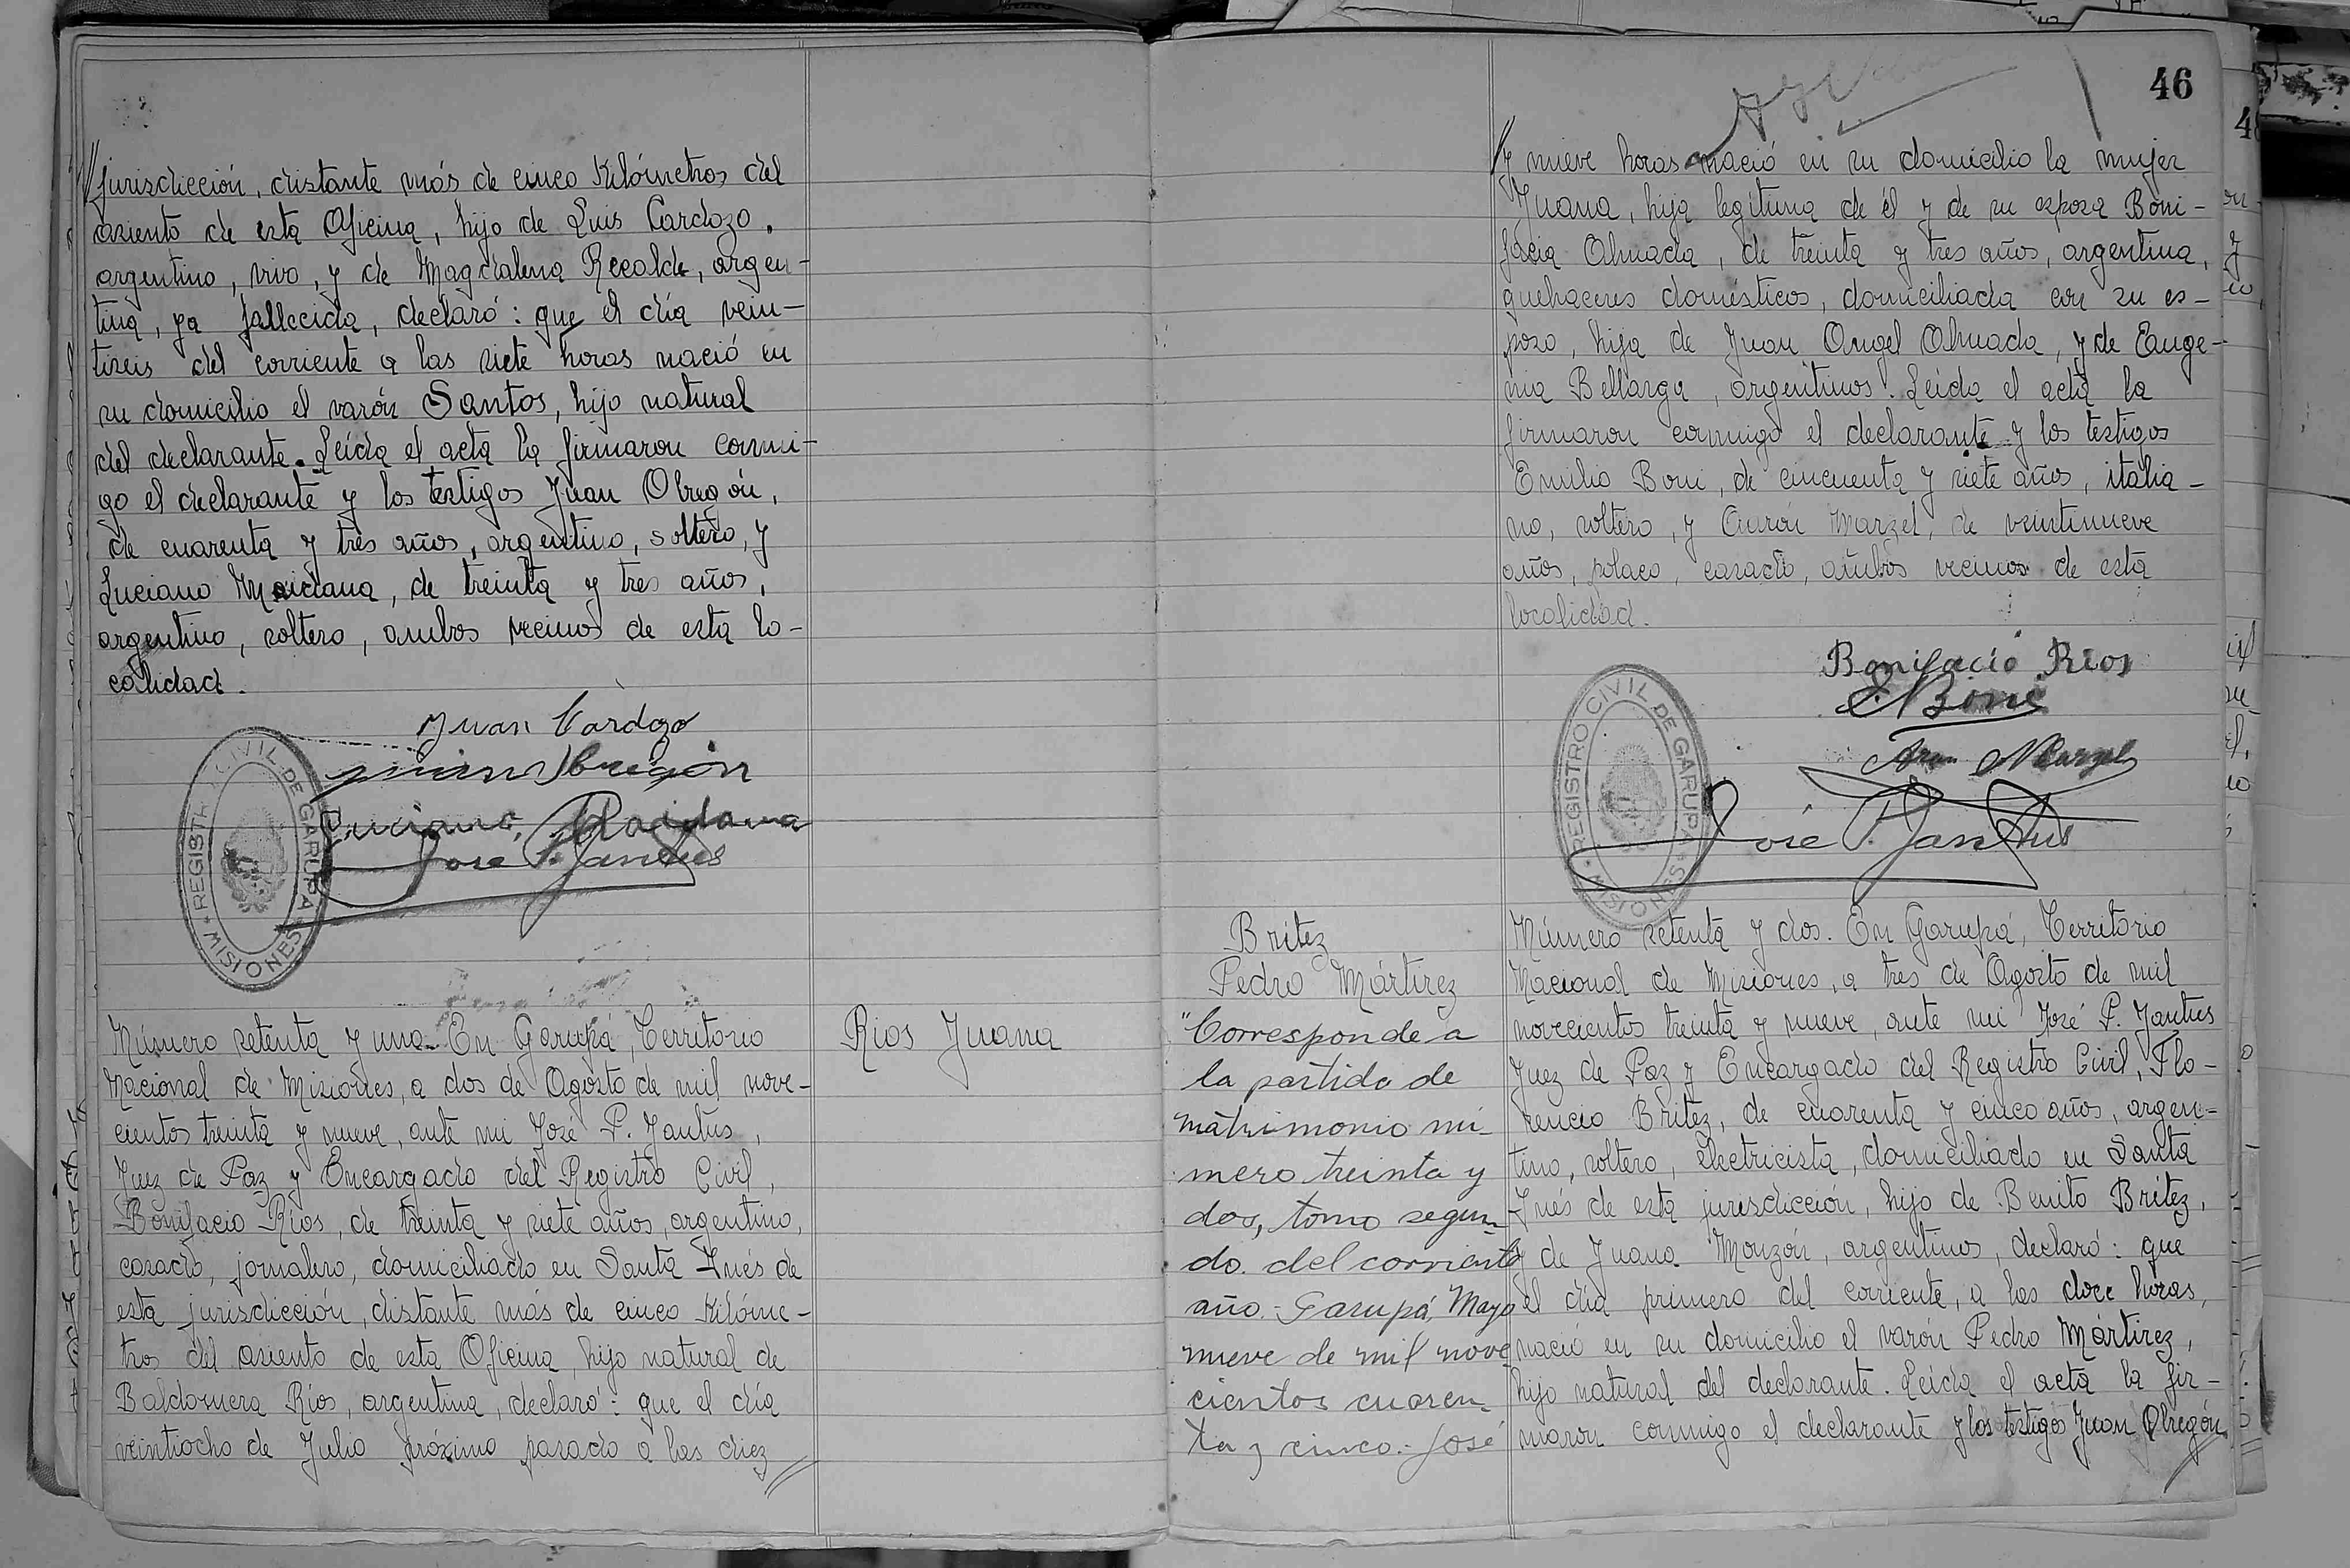 jurisdicción, distante más de cinco Kilómetros del
asiento de esta Oficina, hijo de Luis Cardozo,
argentino, vivo, y de Magdalena Recalde, argen-
tina, ya fallecida, declaró: que el día vein-
tiseis del corriente a las siete horas nació en
su domicilio el varón Santos, hijo natural
del declarante. Leída el acta la firmaron conmi-
go el declarante y los testigos Juan Obregón,
de cuarenta y tres años, argentino, soltero, y
Luciano Maidana, de treinta y tres años,
argentino, soltero, ambos vecinos de esta lo-
calidad.
Juan Cardozo
Juan Obregón
Luciano Maidana
José P. Jantus
REGISTRO CIVIL DE GARUPA
MISIONES
Número setenta y una. En Garupá, Territorio
Nacional de Misiones, a dos de Agosto de mil nove-
cientos treinta y nueve, ante mi José P. Jantus,
Juez de Paz y Encargado del Registro Civil,
Bonifacio Ríos, de treinta y siete años, argentino,
casado, jornalero, domiciliado en Santa Inés de
esta jurisdicción, distante más de cinco Kilóme-
tros del asiento de esta Oficina, hijo natural de
Baldomera Ríos, argentina, declaró: que el día
veintiocho de Julio próximo pasado a las diez
Rios Juana
46
y nueve horas nació en su domicilio la mujer
Juana, hija legítima de él y de su esposa Boni-
facia Almada, de treinta y tres años, argentina,
quehaceres domésticos, domiciliada con su es-
poso, hija de Juan Angel Almada, y de Euge-
nia Bellarga, argentinos. Leída el acta la
firmaron conmigo el declarante y los testigos
Emilio Boni, de cincuenta y siete años, italia-
no, soltero, y Aarón Marzel, de veintinueve
años, polaco, casado, ambos vecinos de esta
localidad.
Bonifacio Rios
E Boni
Aron Marzel
José P. Jantus
REGISTRO CIVIL DE GARUPA
MISIONES
Britez
Pedro Mártirez
"Corresponde a
la partida de
matrimonio nú-
mero treinta y
dos, tomo segun-
do del corriente
año.- Garupá, Mayo
nueve de mil nove
cientos cuaren-
ta y cinco.- José
Número setenta y dos. En Garupá, Territorio
Nacional de Misiones, a tres de Agosto de mil
novecientos treinta y nueve, ante mi José P. Jantus
Juez de Paz y Encargado del Registro Civil, Flo-
rencio Britez, de cuarenta y cinco años, argen-
tino, soltero, electricista, domiciliado en Santa
Inés de esta jurisdicción, hijo de Benito Britez,
y de Juana Monzón, argentinos, declaró: que
el día primero del corriente, a las doce horas,
nació en su domicilio el varón Pedro Mártirez,
hijo natural del declarante. Leída el acta la fir-
maron conmigo el declarante y los testigos Juan Obregón